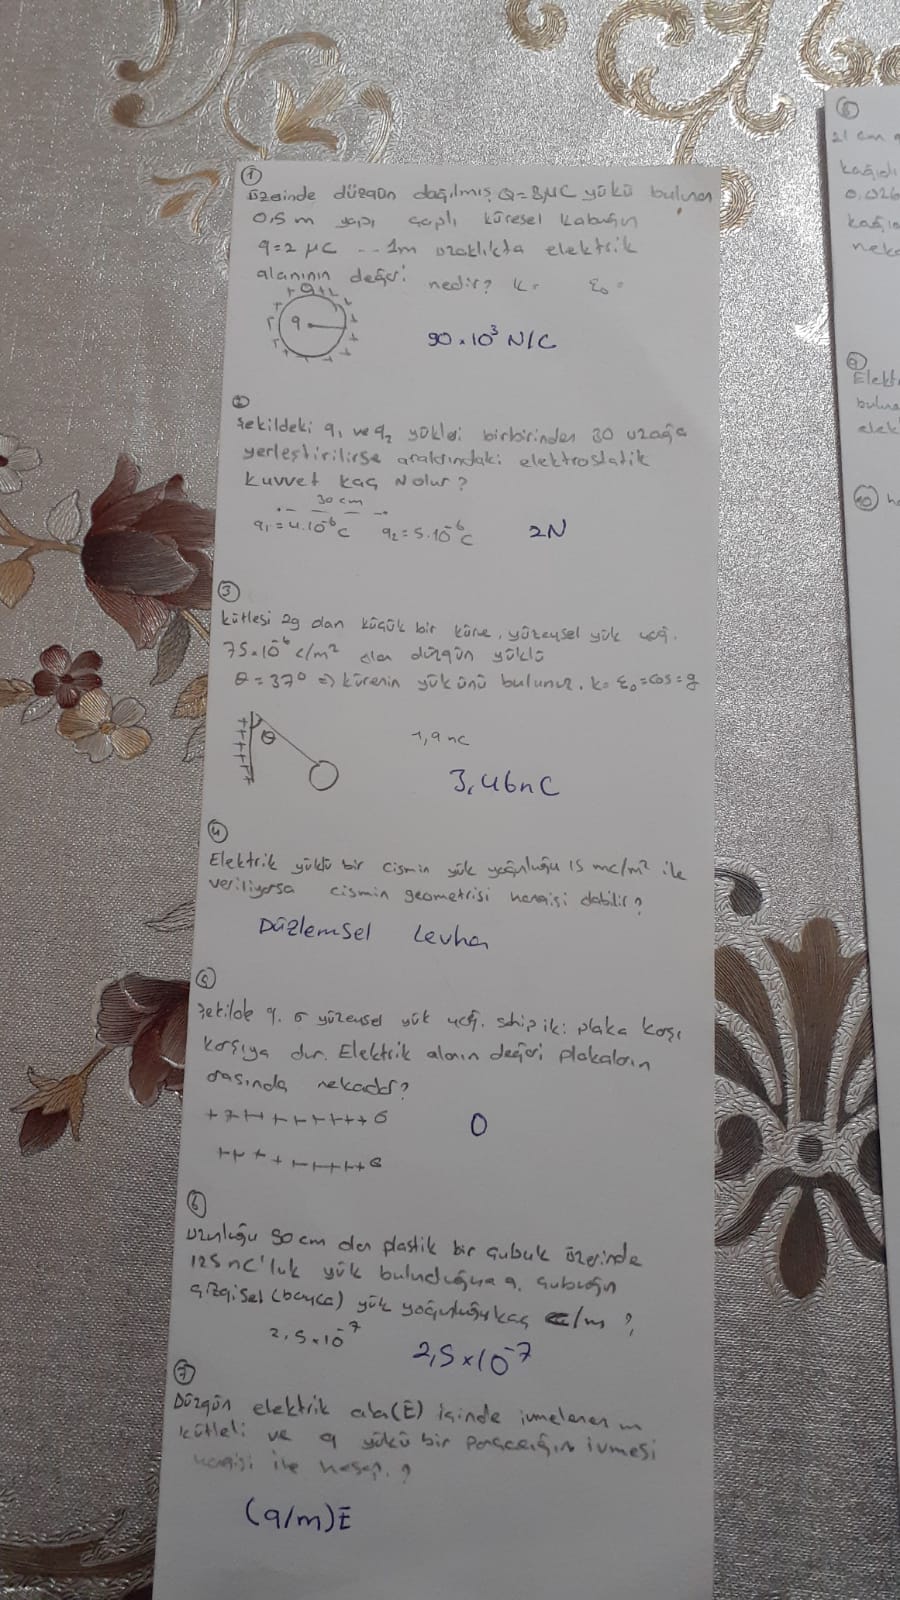 1
üzerinde düzgün dağılmış Q=8μC yükü bulunan
0,5 m yarı çaplı küresel kabuğun
q=2 μC -- 1m uzaklıkta elektrik
alanının değeri nedir? k= ε₀=
q
90.10³ N/C
2
Şekildeki q₁ ve q₂ yükleri birbirinden 30 uzağa
yerleştirilirse aralarındaki elektrostatik
kuvvet kaç N olur?
30 cm
q₁=4.10⁻⁶C q₂=5.10⁻⁶C 2N
3
kütlesi 2g olan küçük bir küre, yüzeysel yük
75.10⁻⁶ c/m² olan düzgün yüklü
θ=37° => kürenin yükünü bulunuz. k= ε₀=cos=g
θ
1,9 nc
3,46nC
4
Elektrik yüklü bir cismin yük yoğunluğu 15 mc/m² ile
veriliyorsa cismin geometrisi hangisi olabilir?
Düzlemsel Levha
5
Şekilde g. σ yüzeysel yük sahip iki plaka karşı
karşıya dur. Elektrik alanın değeri plakaların
arasında nekadar?
+++++++++++ σ
0
++++++++++ σ
6
Uzunluğu 50cm olan plastik bir çubuk üzerinde
125 nC'luk yük bulunduğuna g. çubuğun
çizgisel (boyca) yük yoğunluğu kaç c/m?
2,5x10⁻⁷
2,5x10⁻⁷
7
Düzgün elektrik ala(E) içinde ivmelenen m
kütleli ve q yükü bir parçacığın ivmesi
hangisi ile hesap.?
(q/m)E
8
21 cm
kağıdı
0,026
neka
9
Elektr
bulun
elek
10